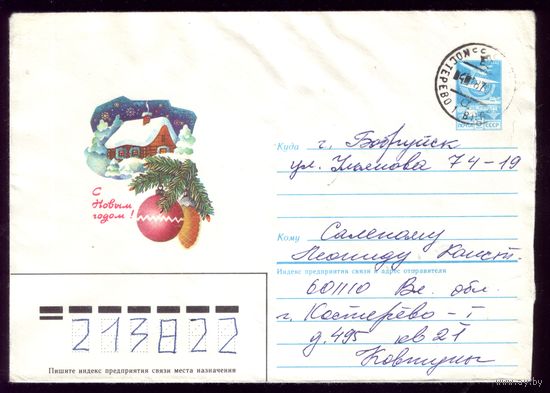 КОСТЕРЕВО
ПОЧТА СССР
С
Новым
годом!
Куда г. Бобруйск
ул. Ульянова 74-19
Кому Саленому
Леониду Конст.
Индекс предприятия связи и адрес отправителя
601110 Вл. обл.
г. Костерёво-1
д. 495 кв 21
213822
Пишите индекс предприятия связи места назначения
www.ay.by